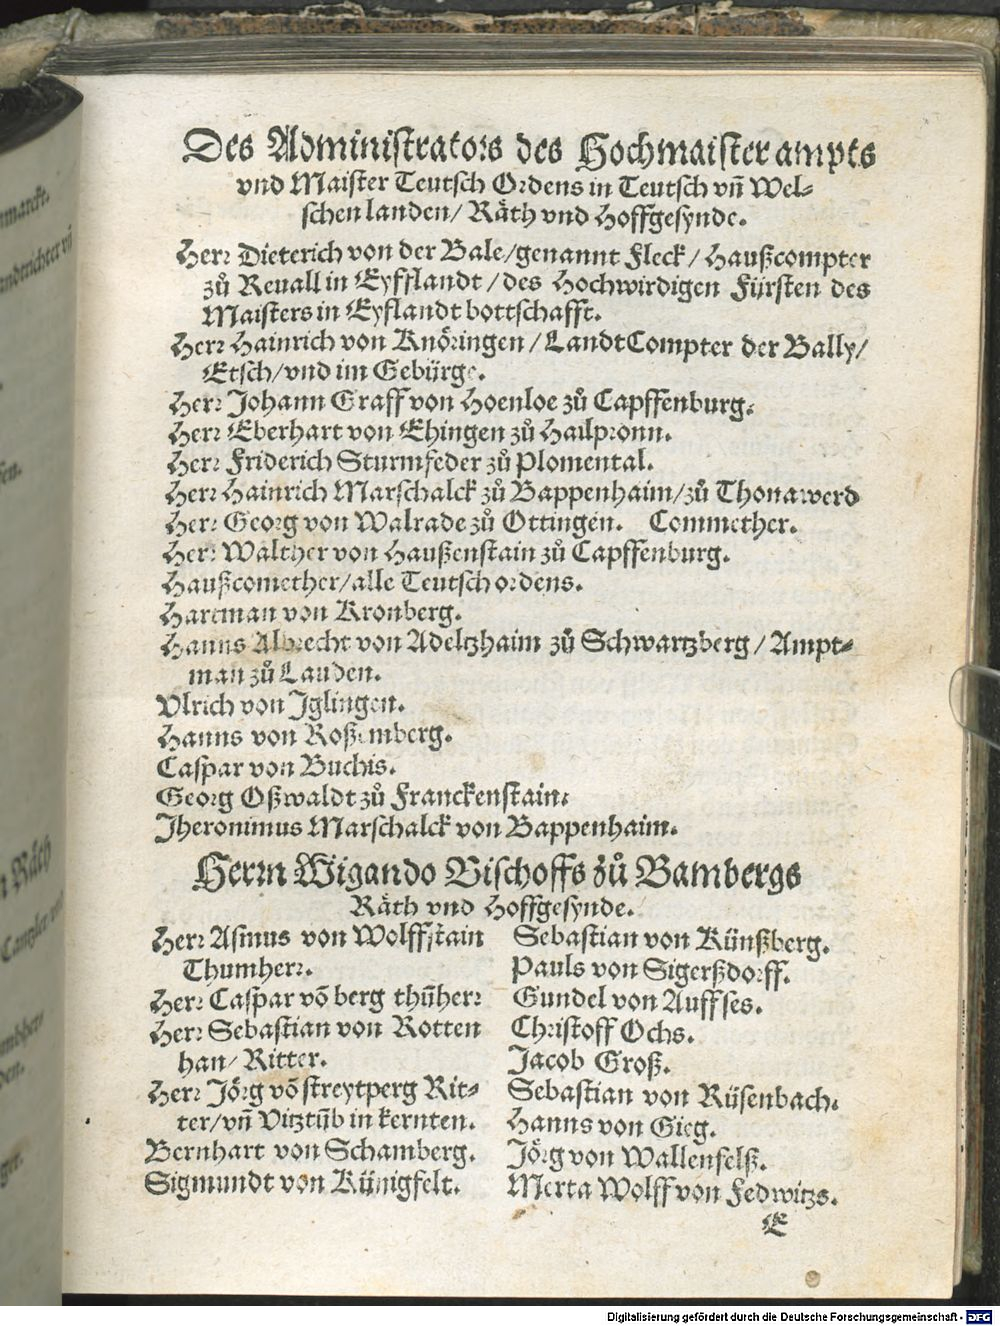 Des Administrators des Hochmaister ampts
vnd Maister Teutsch Ordens in Teutsch vñ Wel-
schen landen/ Räth vnd Hoffgesynde.
Herr Dieterich von der Bale/genannt Fleck/ Haußcompter
zů Reuall in Eyfflandt/des Hochwirdigen Fürsten des
Maisters in Eyflandt bottschafft.
Herr Hainrich von Knöringen/LandtCompter der Bally/
Etsch/vnd im Gebürge.
Herr Johann Graff von Hoenloe zů Capffenburg.
Herr Eberhart von Ehingen zů Hailpronn.
Herr Friderich Sturmfeder zů Plomental.
Herr Hainrich Marschalck zů Bappenhaim/zů Thonawerd
Herr Georg von Walrade zů Ottingen. Commether.
Herr Walther von Haußenstain zů Capffenburg.
Haußcomether/alle Teutsch ordens.
Hartman von Kronberg.
Hanns Albrecht von Adeltzhaim zů Schwartzberg/Ampt-
man zů Lauden.
Vlrich von Iglingen.
Hanns von Roßemberg.
Caspar von Buchis.
Georg Oßwaldt zů Franckenstain.
Jheronimus Marschalck von Bappenhaim.
Herrn Wigando Bischoffs zů Bambergs
Räth vnd Hoffgesynde.
Herr Asmus von Wolffstain
Thumherr.
Herr Caspar võ berg thũherr
Herr Sebastian von Rotten
han/ Ritter.
Herr Jörg võ streytperg Rit-
ter/vñ Vitztũb in kernten.
Bernhart von Schamberg.
Sigmundt von Künigfelt.
Sebastian von Künßberg.
Pauls von Sigerßdorff.
Gundel von Auffses.
Christoff Ochs.
Jacob Groß.
Sebastian von Rüsenbach.
Hanns von Gieg.
Jörg von Wallenfelß.
Merta Wolff von Fedwitzs.
E
Digitalisierung gefördert durch die Deutsche Forschungsgemeinschaft - DFG